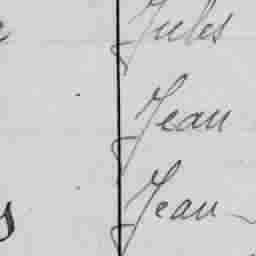 Jules
Jean
Jean